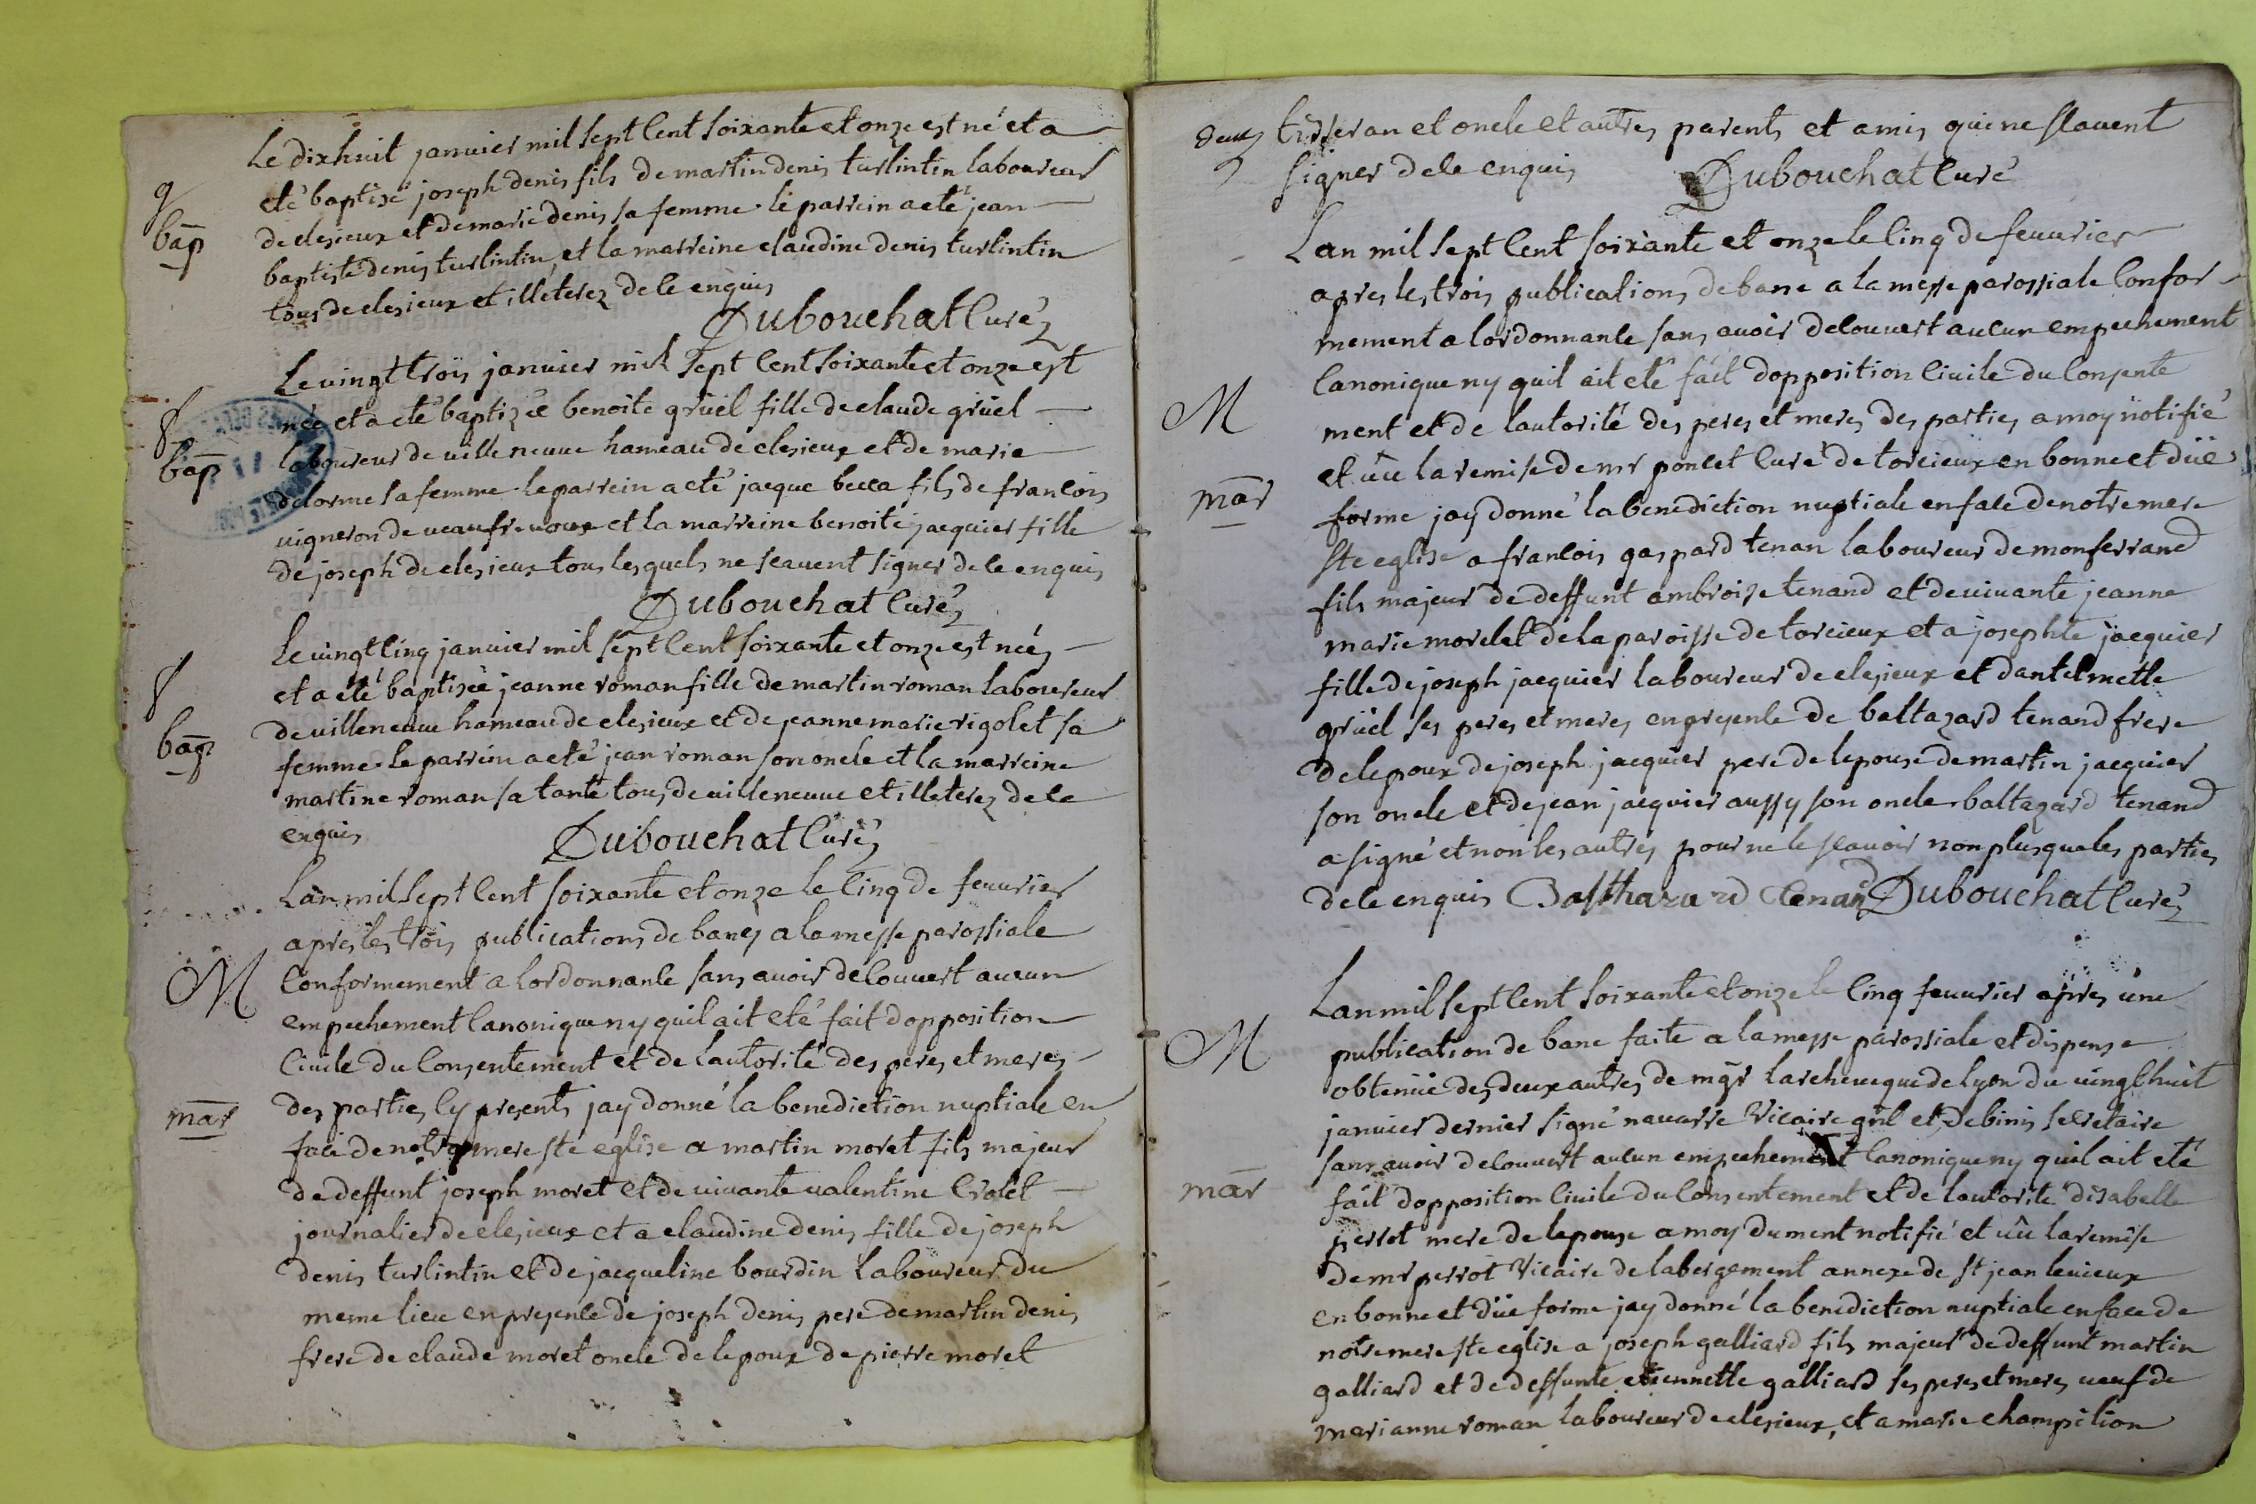 Le dixhuit janvier mil sept cent soixante et onze est né et a
g
bap
eté baptisé joseph denis fils de martin denis turlintin laboureur
de clesieux et de marie denis sa femme. le parrein a eté jean
baptiste denis turlintin, et la marreine claudine denis turlintin
tous de clesieux et illeterez de ce enquis
Dubouchat Curé
Le vingt trois janvier mil sept cent soixante et onze est
née et a eté baptizée benoite grüel fille de claude grüel
f
bap
laboureur de villeneuve hameau de clesieux et de marie
delorme sa femme. le parrein a eté jacque becca fils de francois
vigneron de et la marreine benoite jacquier fille
de joseph de clesieux tous lesquels ne scavent signer de ce enquis
Dubouchat Curé
Le vingt cinq janvier mil sept cent soixante et onze est née
f
et a eté baptisée jeanne roman fille de martin roman laboureur
bap
de villeneuve hameau de clesieux et de jeanne marie rigolet sa
femme. le parrein a eté jean roman son oncle et la marreine
martine roman sa tante tous de villeneuve et illeterez de ce
enquis
Dubouchat Curé
Lan mil sept cent soixante et onze le cinq de fevvrier
apres les trois publications de banes a la messe parossiale
M
conformement a lordonnance sans avoir decouvert aucun
empechement canonique ny quil ait eté fait dopposition
civile du consentement et de lautorité des peres et meres
mar
des parties cy presents jay donné la benediction nuptiale en
face de notre mere ste eglise a martin moret fils majeur
de deffunt joseph moret et de vivante valentine crolet
journalier de clesieux et a claudine denis fille de joseph
denis turlintin et de jacqueline bourdin laboureur du
meme lieu en presence de joseph denis pere de martin denis
frere de claude moret oncle de lepoux de pierre moret
deux
tisseran et oncle et autres parents et amis qui ne scavent
signer de ce enquis
Dubouchat Curé
Lan mil sept cent soixante et onze le cinq de fevvrier
apres les trois publications de banc a la messe parossiale confor-
mement a lordonnance sans avoir decouvert aucun empechement
canonique ny quil ait eté fait dopposition civile du consente
M
ment et de lautorité des peres et meres des parties a moy notifié
et vû la remise de mr poncet curé de torcieux en bonne et düe
mar
forme jay donné la benediction nuptiale en face de notre mere
ste eglise a francois gaspard tenan laboureur de monferrand
fils majeur de deffunt ambroise tenand et de vivante jeanne
marie morelet de la paroisse de torcieux et a josephte jacquier
fille de joseph jacquier laboureur de clesieux et dantelmette
grüel ses peres et meres en presence de baltazard tenand frere
de lepoux de joseph jacquier pere de lepouse de martin jacquier
son oncle et de jean jacquier aussy son oncle. baltazard tenand
a signé et non les autres pour ne le scavoir non plus que les parties
de ce enquis Balthazard tenand Dubouchat Curé
Lan mil sept cent soixante et onze le cinq fevvrier apres une
M
publication de banc faite a la messe parossiale et dispense
obtenüe des deux autres de mgr larcheveque de lyon du vingt huit
janvier dernier signé navarre vicaire gnl et debinis secretaire
sans avoir decouvert aucun empechement canonique ny quil ait eté
mar
fait dopposition civile du consentement et de lautorité disabelle
perrot mere de lepouse a moy dument notifié et vû la remise
de mr perrot vicaire de labergement annexe de st jean levieux
en bonne et düe forme jay donné la benediction nuptiale en face de
notre mere ste eglise a joseph galliard fils majeur de deffunt martin
galliard et de deffunte etiennette galliard ses peres et meres veuf de
marianne roman laboureur de clesieux, et a marie champition